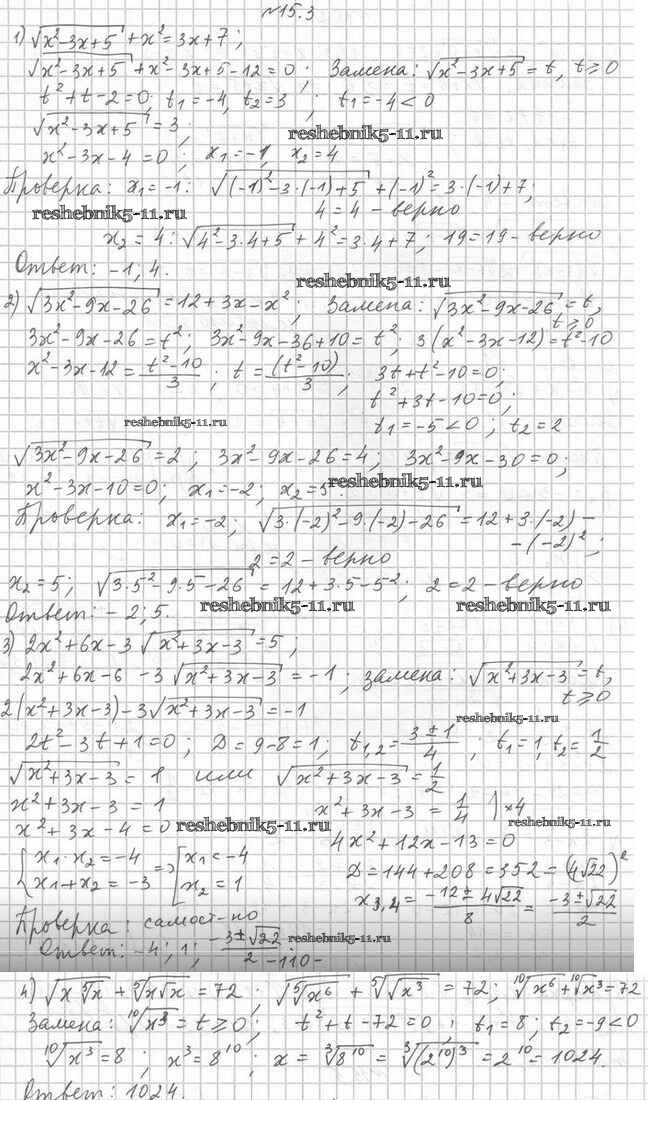 №15.3
1) √(x²-3x+5) + x² = 3x+7;
√(x²-3x+5) + x²-3x+5-12=0; Замена: √(x²-3x+5) = t, t≥0
t²+t-2=0; t₁=-4, t₂=3; t₁=-4<0
√(x²-3x+5) = 3;
reshebnik5-11.ru
x²-3x-4=0; x₁=-1, x₂=4
Проверка: x₁=-1: √((-1)²-3·(-1)+5) + (-1)² = 3·(-1)+7;
reshebnik5-11.ru
4=4 - верно
x₂=4: √(4²-3·4+5) + 4² = 3·4+7; 19=19 - верно
Ответ: -1; 4.
reshebnik5-11.ru
2) √(3x²-9x-26) = 12+3x-x²; Замена: √(3x²-9x-26) = t,
t≥0
3x²-9x-26=t²; 3x²-9x-36+10=t²; 3(x²-3x-12)=t²-10
x²-3x-12=(t²-10)/3; t=(t²-10)/3; 3t+t²-10=0;
t²+3t-10=0;
reshebnik5-11.ru
t₁=-5<0; t₂=2
√(3x²-9x-26) = 2; 3x²-9x-26=4; 3x²-9x-30=0;
reshebnik5-11.ru
x²-3x-10=0; x₁=-2; x₂=5.
Проверка: x₁=-2; √(3·(-2)²-9·(-2)-26) = 12+3·(-2)-
-(-2)²;
2=2 - верно
x₂=5; √(3·5²-9·5-26) = 12+3·5-5²; 2=2 - верно
reshebnik5-11.ru reshebnik5-11.ru
Ответ: -2; 5.
3) 2x²+6x-3√(x²+3x-3) = 5;
2x²+6x-6-3√(x²+3x-3) = -1; замена: √(x²+3x-3) = t,
t≥0
2(x²+3x-3)-3√(x²+3x-3) = -1
reshebnik5-11.ru
2t²-3t+1=0; D=9-8=1; t₁,₂=(3±1)/4; t₁=1, t₂=1/2
√(x²+3x-3) = 1 или √(x²+3x-3) = 1/2
x²+3x-3=1 x²+3x-3=1/4 | ×4
x²+3x-4=0 reshebnik5-11.ru reshebnik5-11.ru
4x²+12x-13=0
{x₁·x₂=-4 => [x₁=-4 D=144+208=352=(4√22)²
{x₁+x₂=-3 [x₂=1 x₃,₄=(-12±4√22)/8=(-3±√22)/2
Проверка: самост-но
Ответ: -4; 1; (-3±√22)/2 reshebnik5-11.ru
-110-
4) √(x·⁵√x) + ⁵√(x√x) = 72; √(⁵√(x⁶)) + ⁵√(√(x³)) = 72; ¹⁰√(x⁶) + ¹⁰√(x³) = 72
Замена: ¹⁰√(x³) = t≥0; t²+t-72=0; t₁=8; t₂=-9<0
¹⁰√(x³) = 8; x³=8¹⁰; x=³√(8¹⁰)=³√((2¹⁰)³)=2¹⁰=1024.
Ответ: 1024.